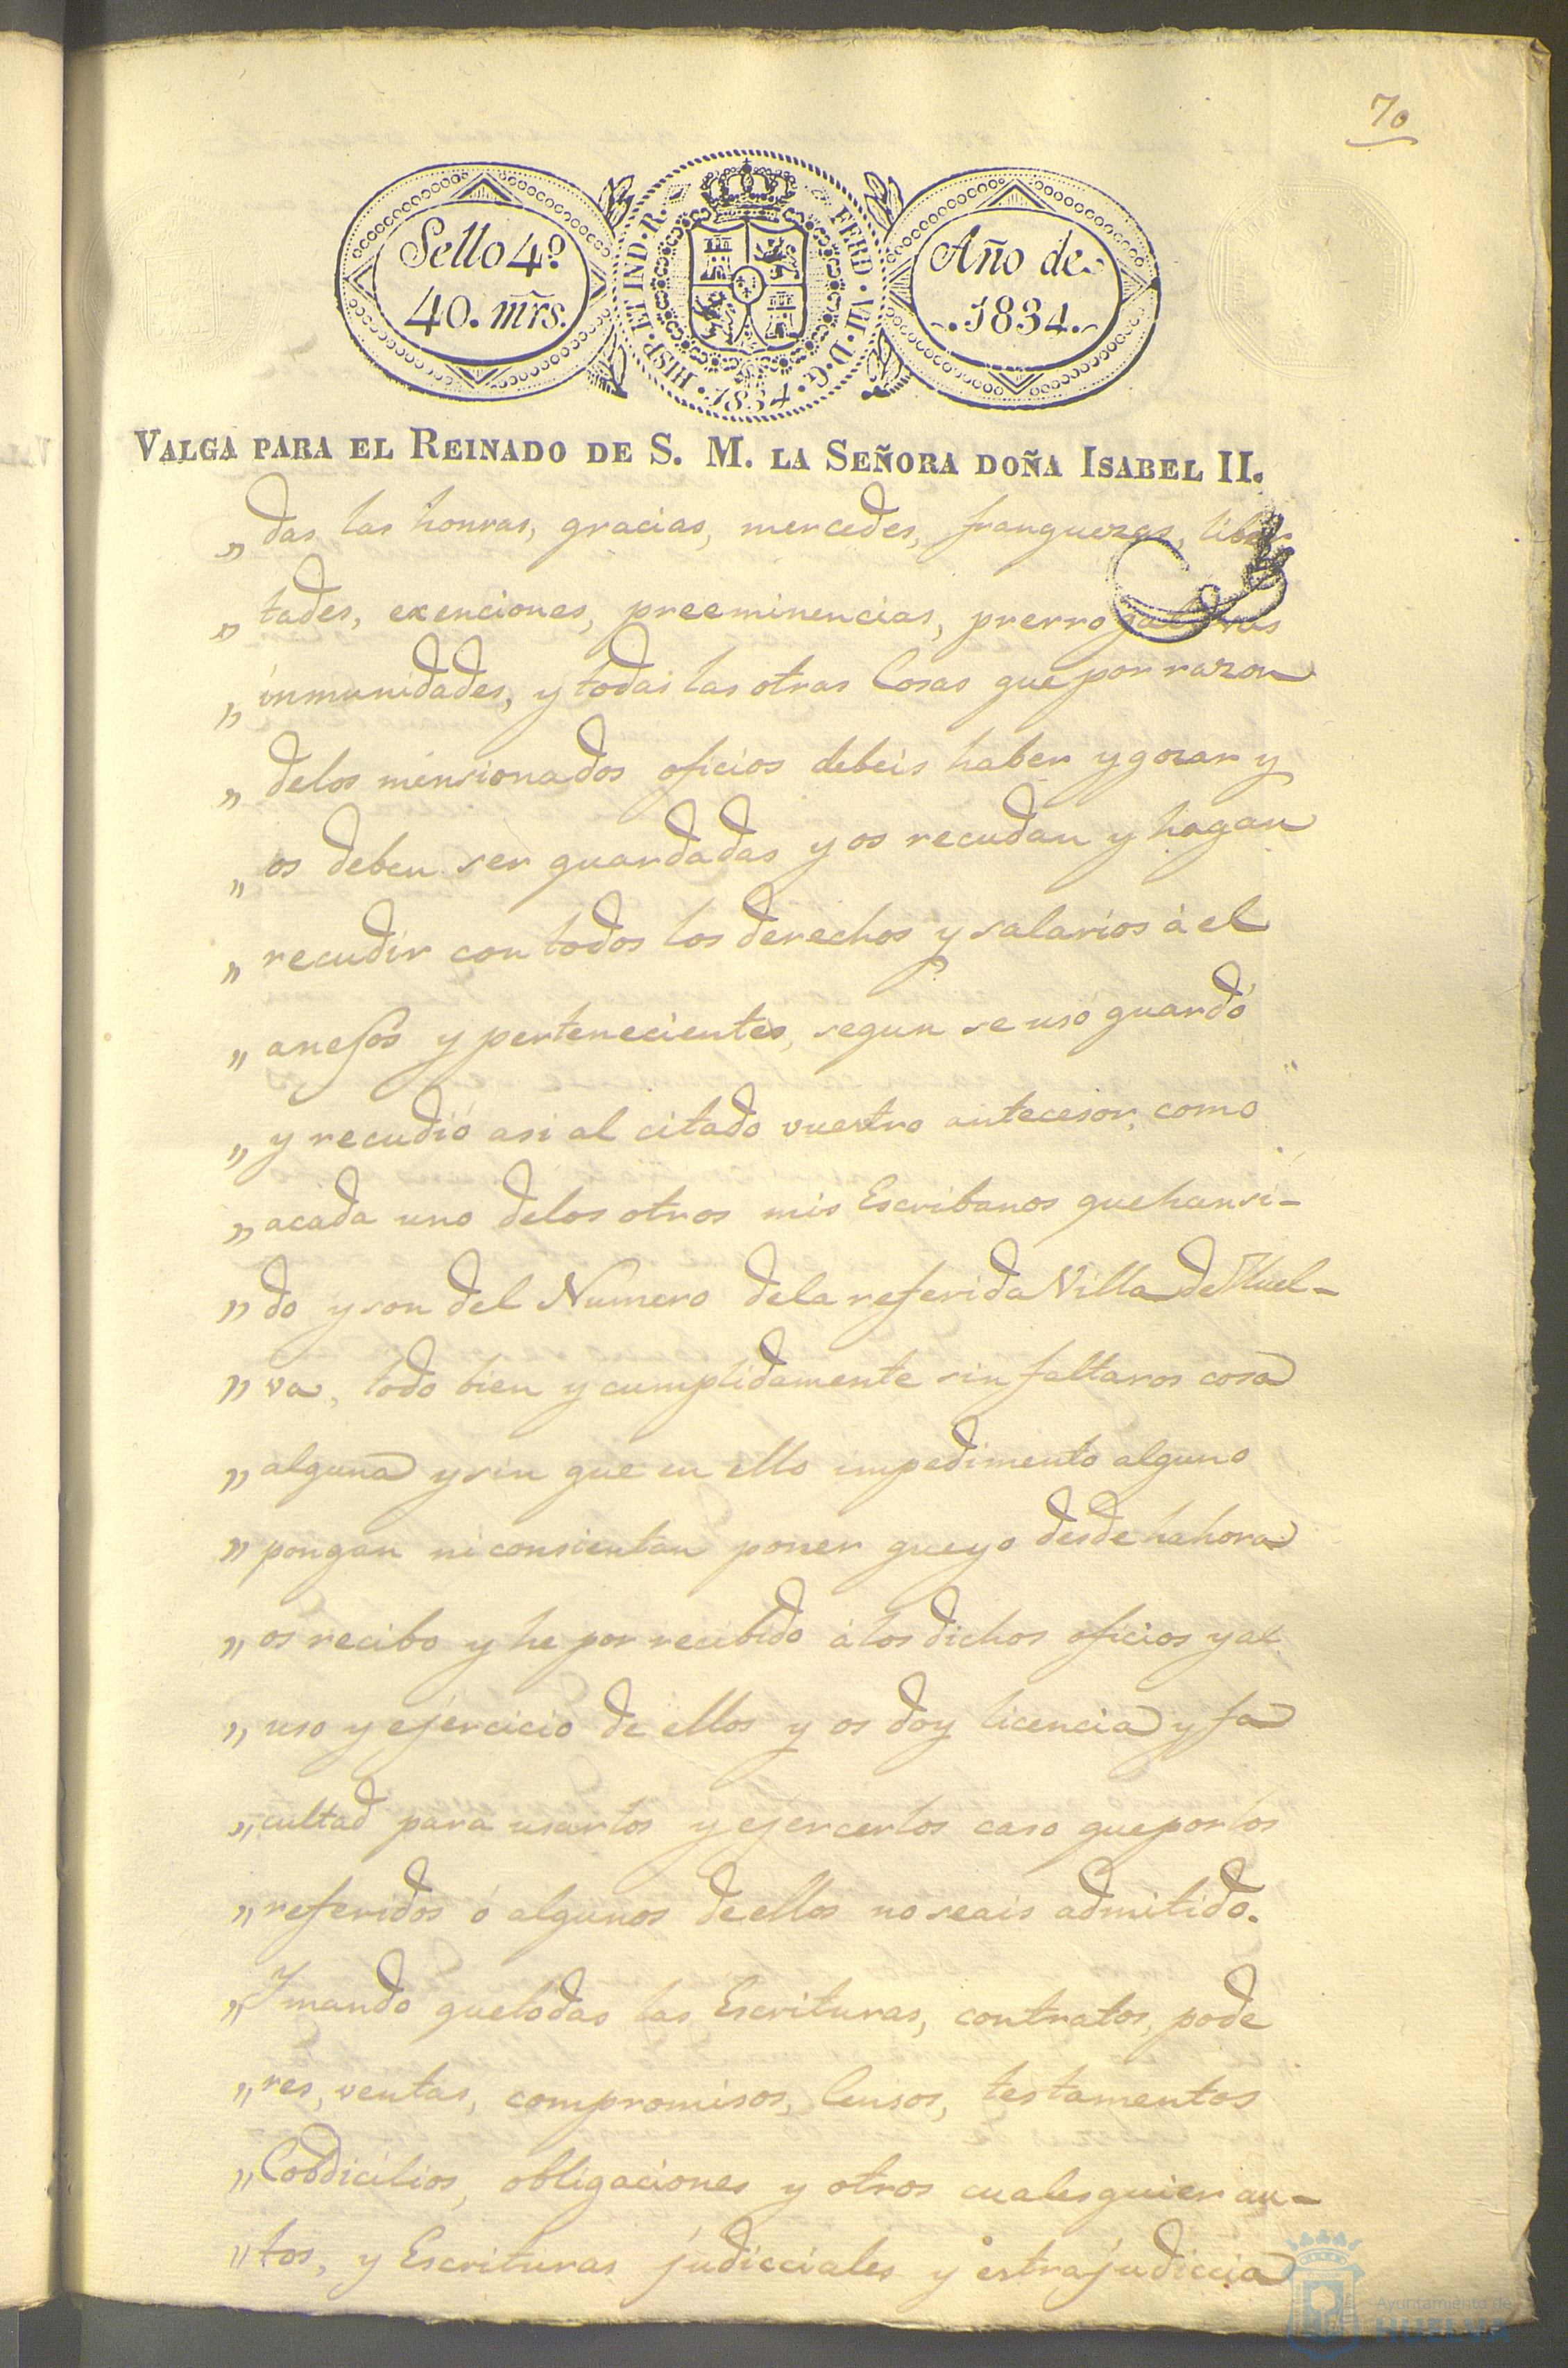 70
Sello 4º
40. mrs.
HISP. ET IND. R. FERD. VII. D. G. 1834.
Año de
1834.
VALGA PARA EL REINADO DE S. M. LA SEÑORA DOÑA ISABEL II.
„ das las honras, gracias, mercedes, franquezas, liber
„ tades, exenciones, preeminencias, prerrogativas
„ inmunidades, y todas las otras Cosas que por razon
„ delos mensionados oficios debeis haber y gozar y
„ os deben ser guardadas y os recudan y hagan
„ recudir con todos los derechos y salarios á el
„ anesós y pertenecientes, segun se usó guardó
„ y recudió asi al citado vuestro antecesor, como
„ acada uno delos otros mis Escribanos que han si-
„ do y son del Numero dela referida Villa de Huel-
„ va, todo bien y cumplidamente sin faltaros cosa
„ alguna y sin que en ello impedimento alguno
„ pongan ni consientan poner que yo desde hahora
„ os recibo y he por recibido álos dichos oficios y al
„ uso y ejercicio de ellos y os doy licencia y fa
„ cultad para usarlos y ejercerlos caso que por los
„ referidos ó algunos de ellos no seais admitido.
„ Y mando que todas las Escrituras, contratos, pode
„ res, ventas, compromisos, Censos, testamentos
„ Cobdicilios, obligaciones y otros cualesquier au-
„ tos, y Escrituras judicciales y estrajudiccia
Ayuntamiento de
HUELVA